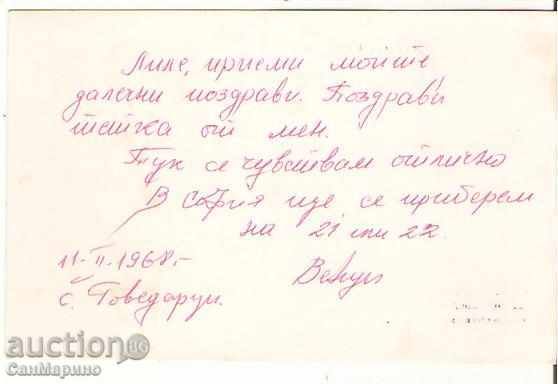 Лиле, приеми моите
далечни поздрави. Поздрави
татка от мен.
Тук се чувствам отлично
В София ще се приберем
на 21 или 22
11-II-1968.-
с. Говедарци.
auction BG
СанМарино